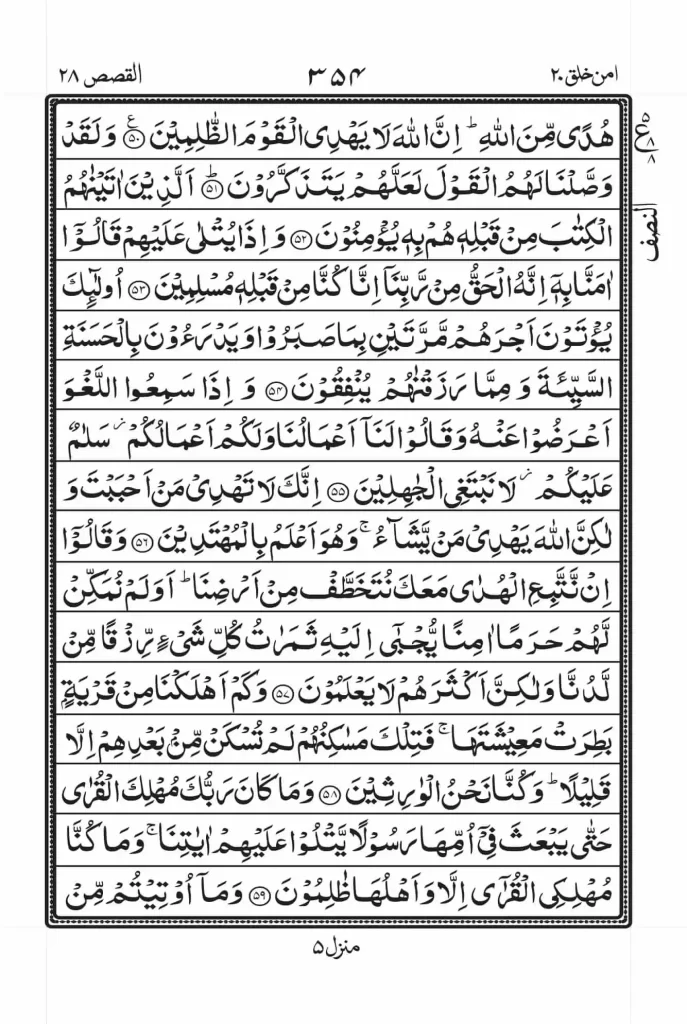 امن خلق ۲۰
۳۵۴
القصص ۲۸
ع ۵ ۸ ۸
النصف
هُدًى مِّنَ اللّٰهِ ؕ اِنَّ اللّٰهَ لَا يَهْدِى الْقَوْمَ الظّٰلِمِيْنَ ۵۰ ع وَ لَقَدْ
وَصَّلْنَا لَهُمُ الْقَوْلَ لَعَلَّهُمْ يَتَذَكَّرُوْنَ ؕ ۵۱ اَلَّذِيْنَ اٰتَيْنٰهُمُ
الْكِتٰبَ مِنْ قَبْلِهٖ هُمْ بِهٖ يُؤْمِنُوْنَ ۵۲ وَ اِذَا يُتْلٰى عَلَيْهِمْ قَالُوْۤا
اٰمَنَّا بِهٖۤ اِنَّهُ الْحَقُّ مِنْ رَّبِّنَاۤ اِنَّا كُنَّا مِنْ قَبْلِهٖ مُسْلِمِيْنَ ۵۳ اُولٰٓئِكَ
يُؤْتَوْنَ اَجْرَهُمْ مَّرَّتَيْنِ بِمَا صَبَرُوْا وَ يَدْرَءُوْنَ بِالْحَسَنَةِ
السَّيِّئَةَ وَ مِمَّا رَزَقْنٰهُمْ يُنْفِقُوْنَ ۵۴ وَ اِذَا سَمِعُوا اللَّغْوَ
اَعْرَضُوْا عَنْهُ وَ قَالُوْا لَنَاۤ اَعْمَالُنَا وَ لَكُمْ اَعْمَالُكُمْ ز سَلٰمٌ
عَلَيْكُمْ ز لَا نَبْتَغِى الْجٰهِلِيْنَ ۵۵ اِنَّكَ لَا تَهْدِىْ مَنْ اَحْبَبْتَ وَ
لٰكِنَّ اللّٰهَ يَهْدِىْ مَنْ يَّشَآءُ ۚ وَ هُوَ اَعْلَمُ بِالْمُهْتَدِيْنَ ۵۶ وَ قَالُوْۤا
اِنْ نَّتَّبِعِ الْهُدٰى مَعَكَ نُتَخَطَّفْ مِنْ اَرْضِنَا ؕ اَوَلَمْ نُمَكِّنْ
لَّهُمْ حَرَمًا اٰمِنًا يُّجْبٰۤى اِلَيْهِ ثَمَرٰتُ كُلِّ شَىْءٍ رِّزْقًا مِّنْ
لَّدُنَّا وَ لٰكِنَّ اَكْثَرَهُمْ لَا يَعْلَمُوْنَ ۵۷ وَ كَمْ اَهْلَكْنَا مِنْ قَرْيَةٍۭ
بَطِرَتْ مَعِيْشَتَهَا ۚ فَتِلْكَ مَسٰكِنُهُمْ لَمْ تُسْكَنْ مِّنْۢ بَعْدِهِمْ اِلَّا
قَلِيْلًا ؕ وَ كُنَّا نَحْنُ الْوٰرِثِيْنَ ۵۸ وَ مَا كَانَ رَبُّكَ مُهْلِكَ الْقُرٰى
حَتّٰى يَبْعَثَ فِىْۤ اُمِّهَا رَسُوْلًا يَّتْلُوْا عَلَيْهِمْ اٰيٰتِنَا ۚ وَ مَا كُنَّا
مُهْلِكِى الْقُرٰۤى اِلَّا وَ اَهْلُهَا ظٰلِمُوْنَ ۵۹ وَ مَاۤ اُوْتِيْتُمْ مِّنْ
منزل ۵